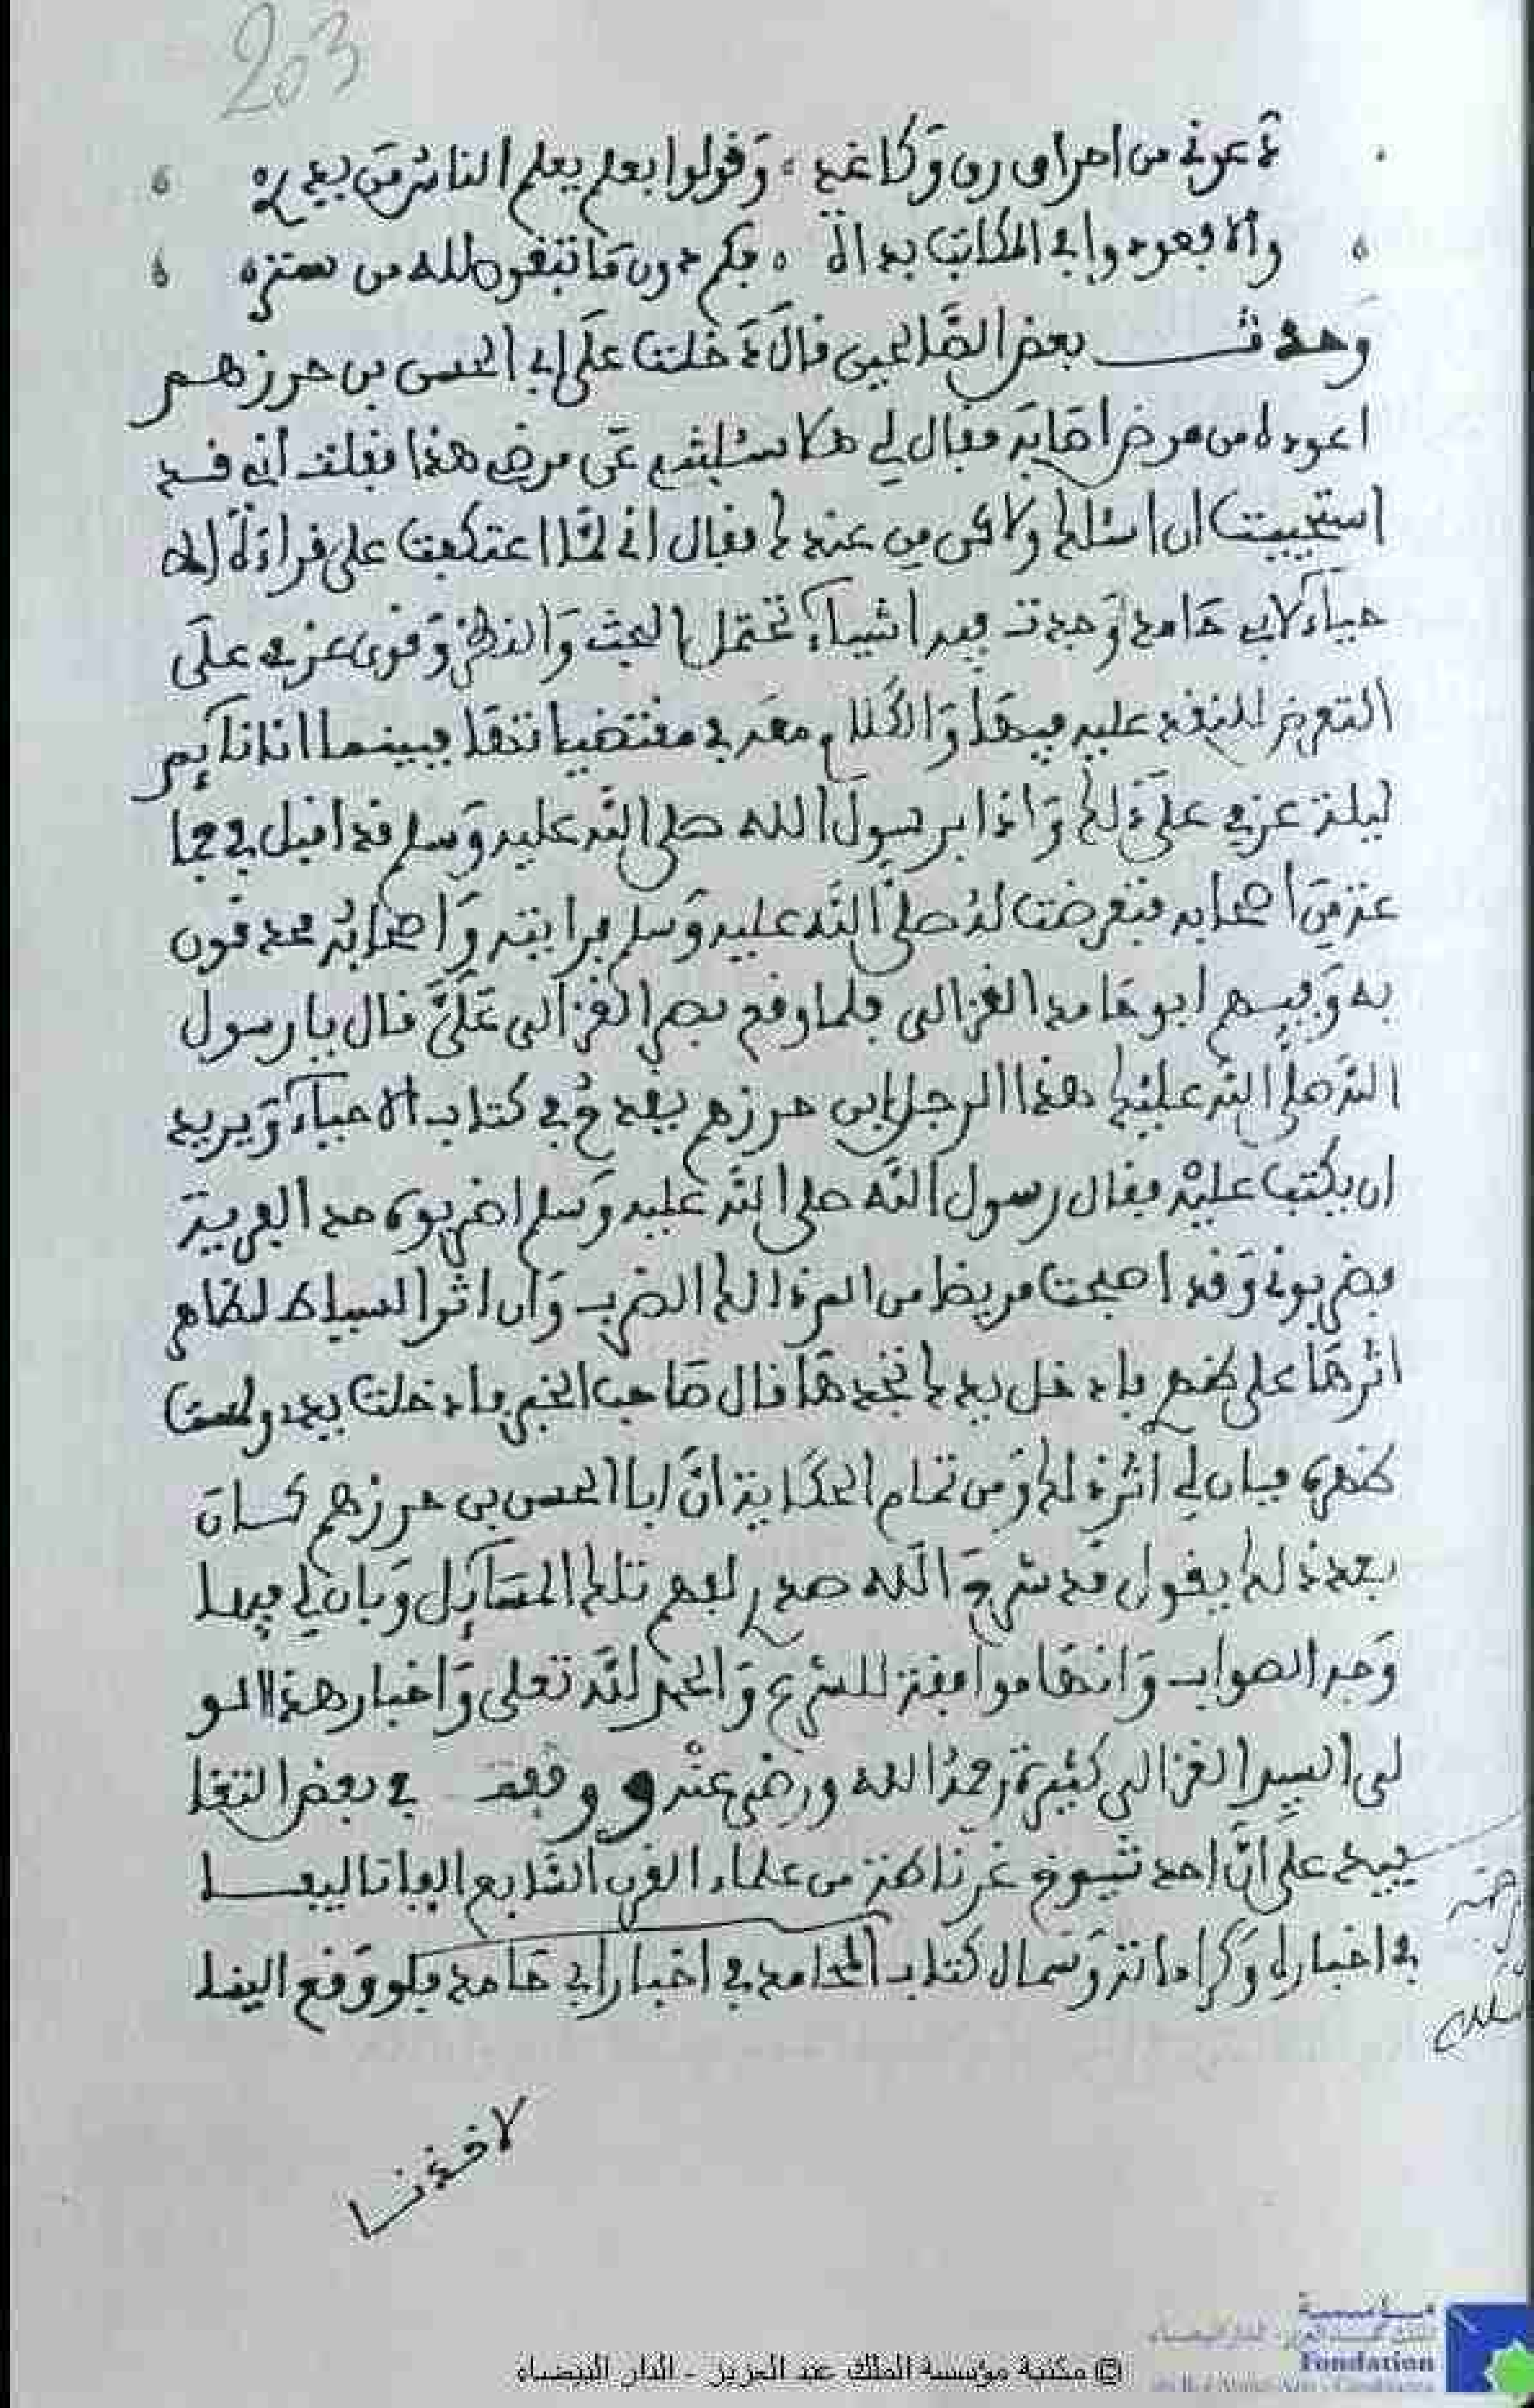 203
دعوني من احراق رق وكاغد وقولوا بعلم يعلم الناس من يدره
والا فعودوا في المكاتب بدأة فكم دون ما تبغون لله من ستره
وحدث بعض الصالحين قال دخلت على ابي الحسن بن حرزهم
اعوده من مرض اصابه فقال لي هلا سئلتني عن مرضي هذا فقلت اني قد
استحييت ان اسئلك ولاكن من عندك فقال اني لما اعتكفت على قراءة الا
حياء لابي حامد وجدت فيه اشياء تحتمل البحث والنظر وقوي عزمي على
التعرض للنقد عليه فيها والكلام معه في مقتضياتها فبينما انا نائم
ليلة عزمي على ذلك واذا برسول الله صلى الله عليه وسلم قد اقبل في جما
عة من اصحابه فتعرضت له صلى الله عليه وسلم فرايته واصحابه محدقون
به وفيهم ابو حامد الغزالي فلما وقع بصر الغزالي علي قال يا رسول
الله صلى الله عليك هذا الرجل ابن حرزهم يقدح في كتاب الاحياء ويريد
ان يكتب عليه فقال رسول الله صلى الله عليه وسلم اضربوه حد الفرية
فضربوني وقد اصبحت مريضا من الم ذلك الضرب وان اثر السياط لظاهر
اثرها على ظهري فادخل يدك تجدها قال صاحب الخبر فادخلت يدي ولمست
ظهره فبان لي اثر ذلك ومن تمام الحكاية ان ابا الحسن بن حرزهم كان
بعد ذلك يقول قد شرح الله صدري لفهم تلك المسائل وبان لي فيها
وجه الصواب وانها موافقة للشرع والحمد لله تعلى واخبار هذا الو
لي السيد الغزالي كثيرة رحمه الله ورضي عنه ووقفت في بعض التقا
ييد على ان احد شيوخ غرناطة من علماء القرن السابع الف تاليفا
في اخباره وكراماته وسماه كتاب المحامد في اخبار ابي حامد فلو وقع الينا
لافدنا
© مكتبة مؤسسة الملك عبد العزيز - الدار البيضاء
مؤسسة
Fondation